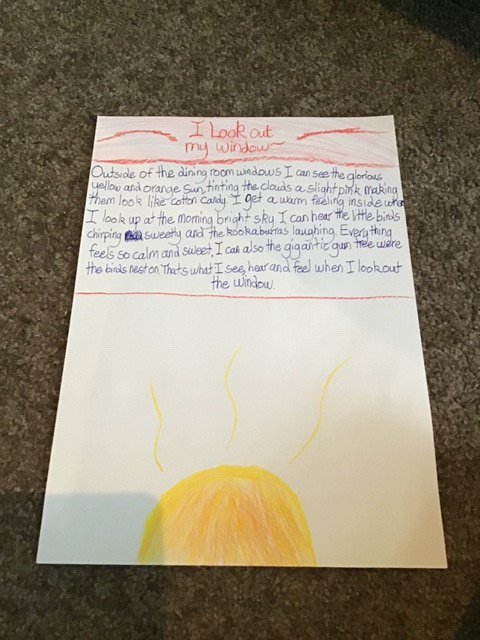 I Look out
my window~
Outside of the dining room windows I can see the glorious
yellow and orange sun, tinting the clouds a slight pink making
them look like cotton candy. I get a warm feeling inside when
I look up at the morning bright sky. I can hear the little birds
chirping sweetly and the kookaburras laughing. Everything
feels so calm and sweet. I can also the gigantic gum tree were
the birds nest on. That's what I see, hear and feel when I look out
the window.